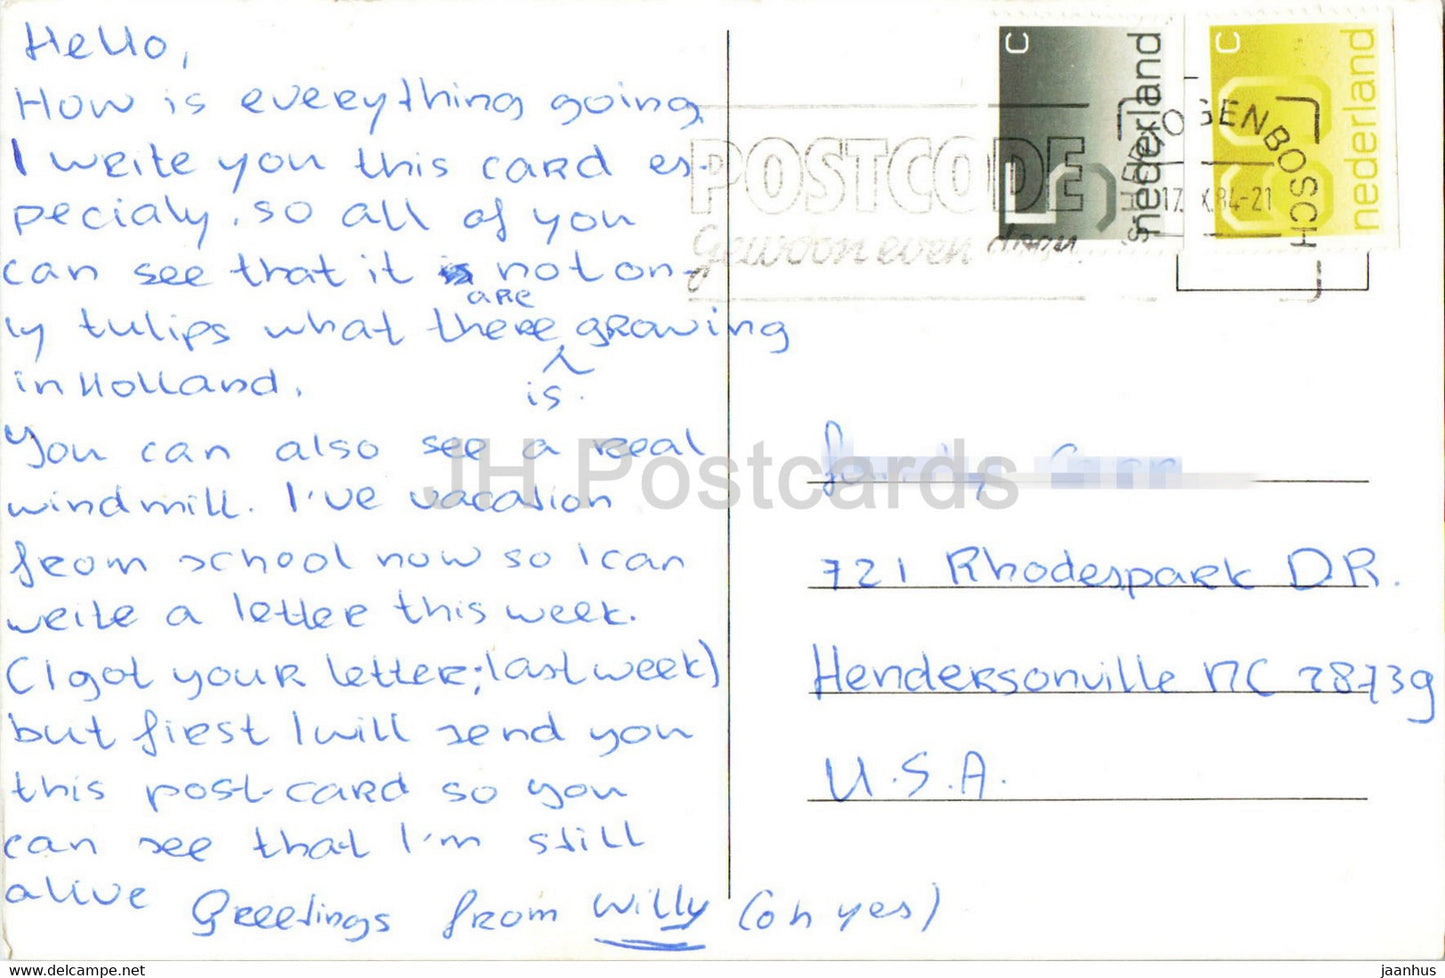 Hello,
How is everything going
I write you this card es-
pecialy, so all of you
can see that it is not on-
are
ly tulips what there growing
is.
in Holland.
You can also see a real
windmill. I've vacation
from school now so I can
write a letter this week.
(I got your letter; last week)
but first I will send you
this post-card so you
can see that I'm still
alive Greetings from Willy (oh yes)
POSTCODE
gewoon even doen
'S HERTOGENBOSCH
17. X.84-21
C nederland
C nederland
JH Postcards
721 Rhodespark DR.
Hendersonville NC 28739
U.S.A.
www.delcampe.net
jaanhus